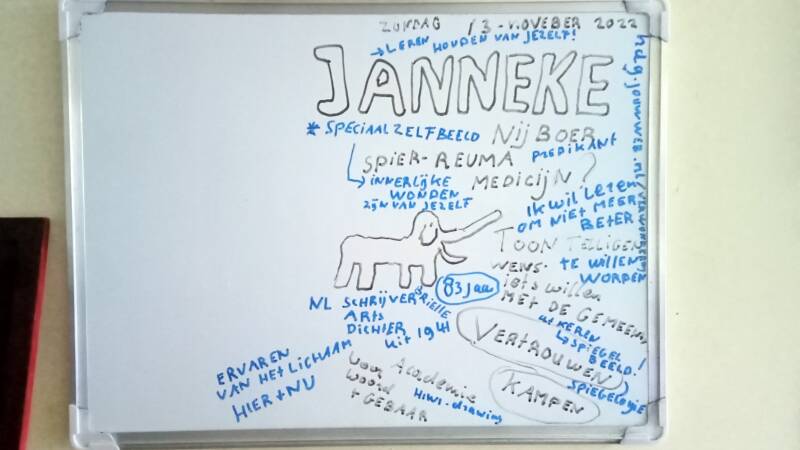 ZONDAG 13-NOVEBER 2022
→ LEREN HOUDEN VAN JEZELF!
JANNEKE
* SPECIAAL ZELFBEELD
NIJBOER
PREDIKANT
SPIER-REUMA
MEDICIJN?
→ INNERLIJKE
WONDEN
ZIJN VAN JEZELF
IK WIL LEREN
OM NIET MEER
BETER
TE WILLEN
WORDEN
TOON TELLIGEN
WENS.
iets willen
MET DE GEMEENT
83 jaa
NL SCHRIJVER BRIELLE
ARTS
DICHTER
uit 1941
KEREN
SPIEGEL
BEELD!
VERTROUWEN
SPIEGELOGIE
KAMPEN
ERVAREN
VAN HET LICHAAM
HIER + NU
voor Academie
woord
+ GEBAAR
HIWI-drawing
hdg.jouwweb.nl/